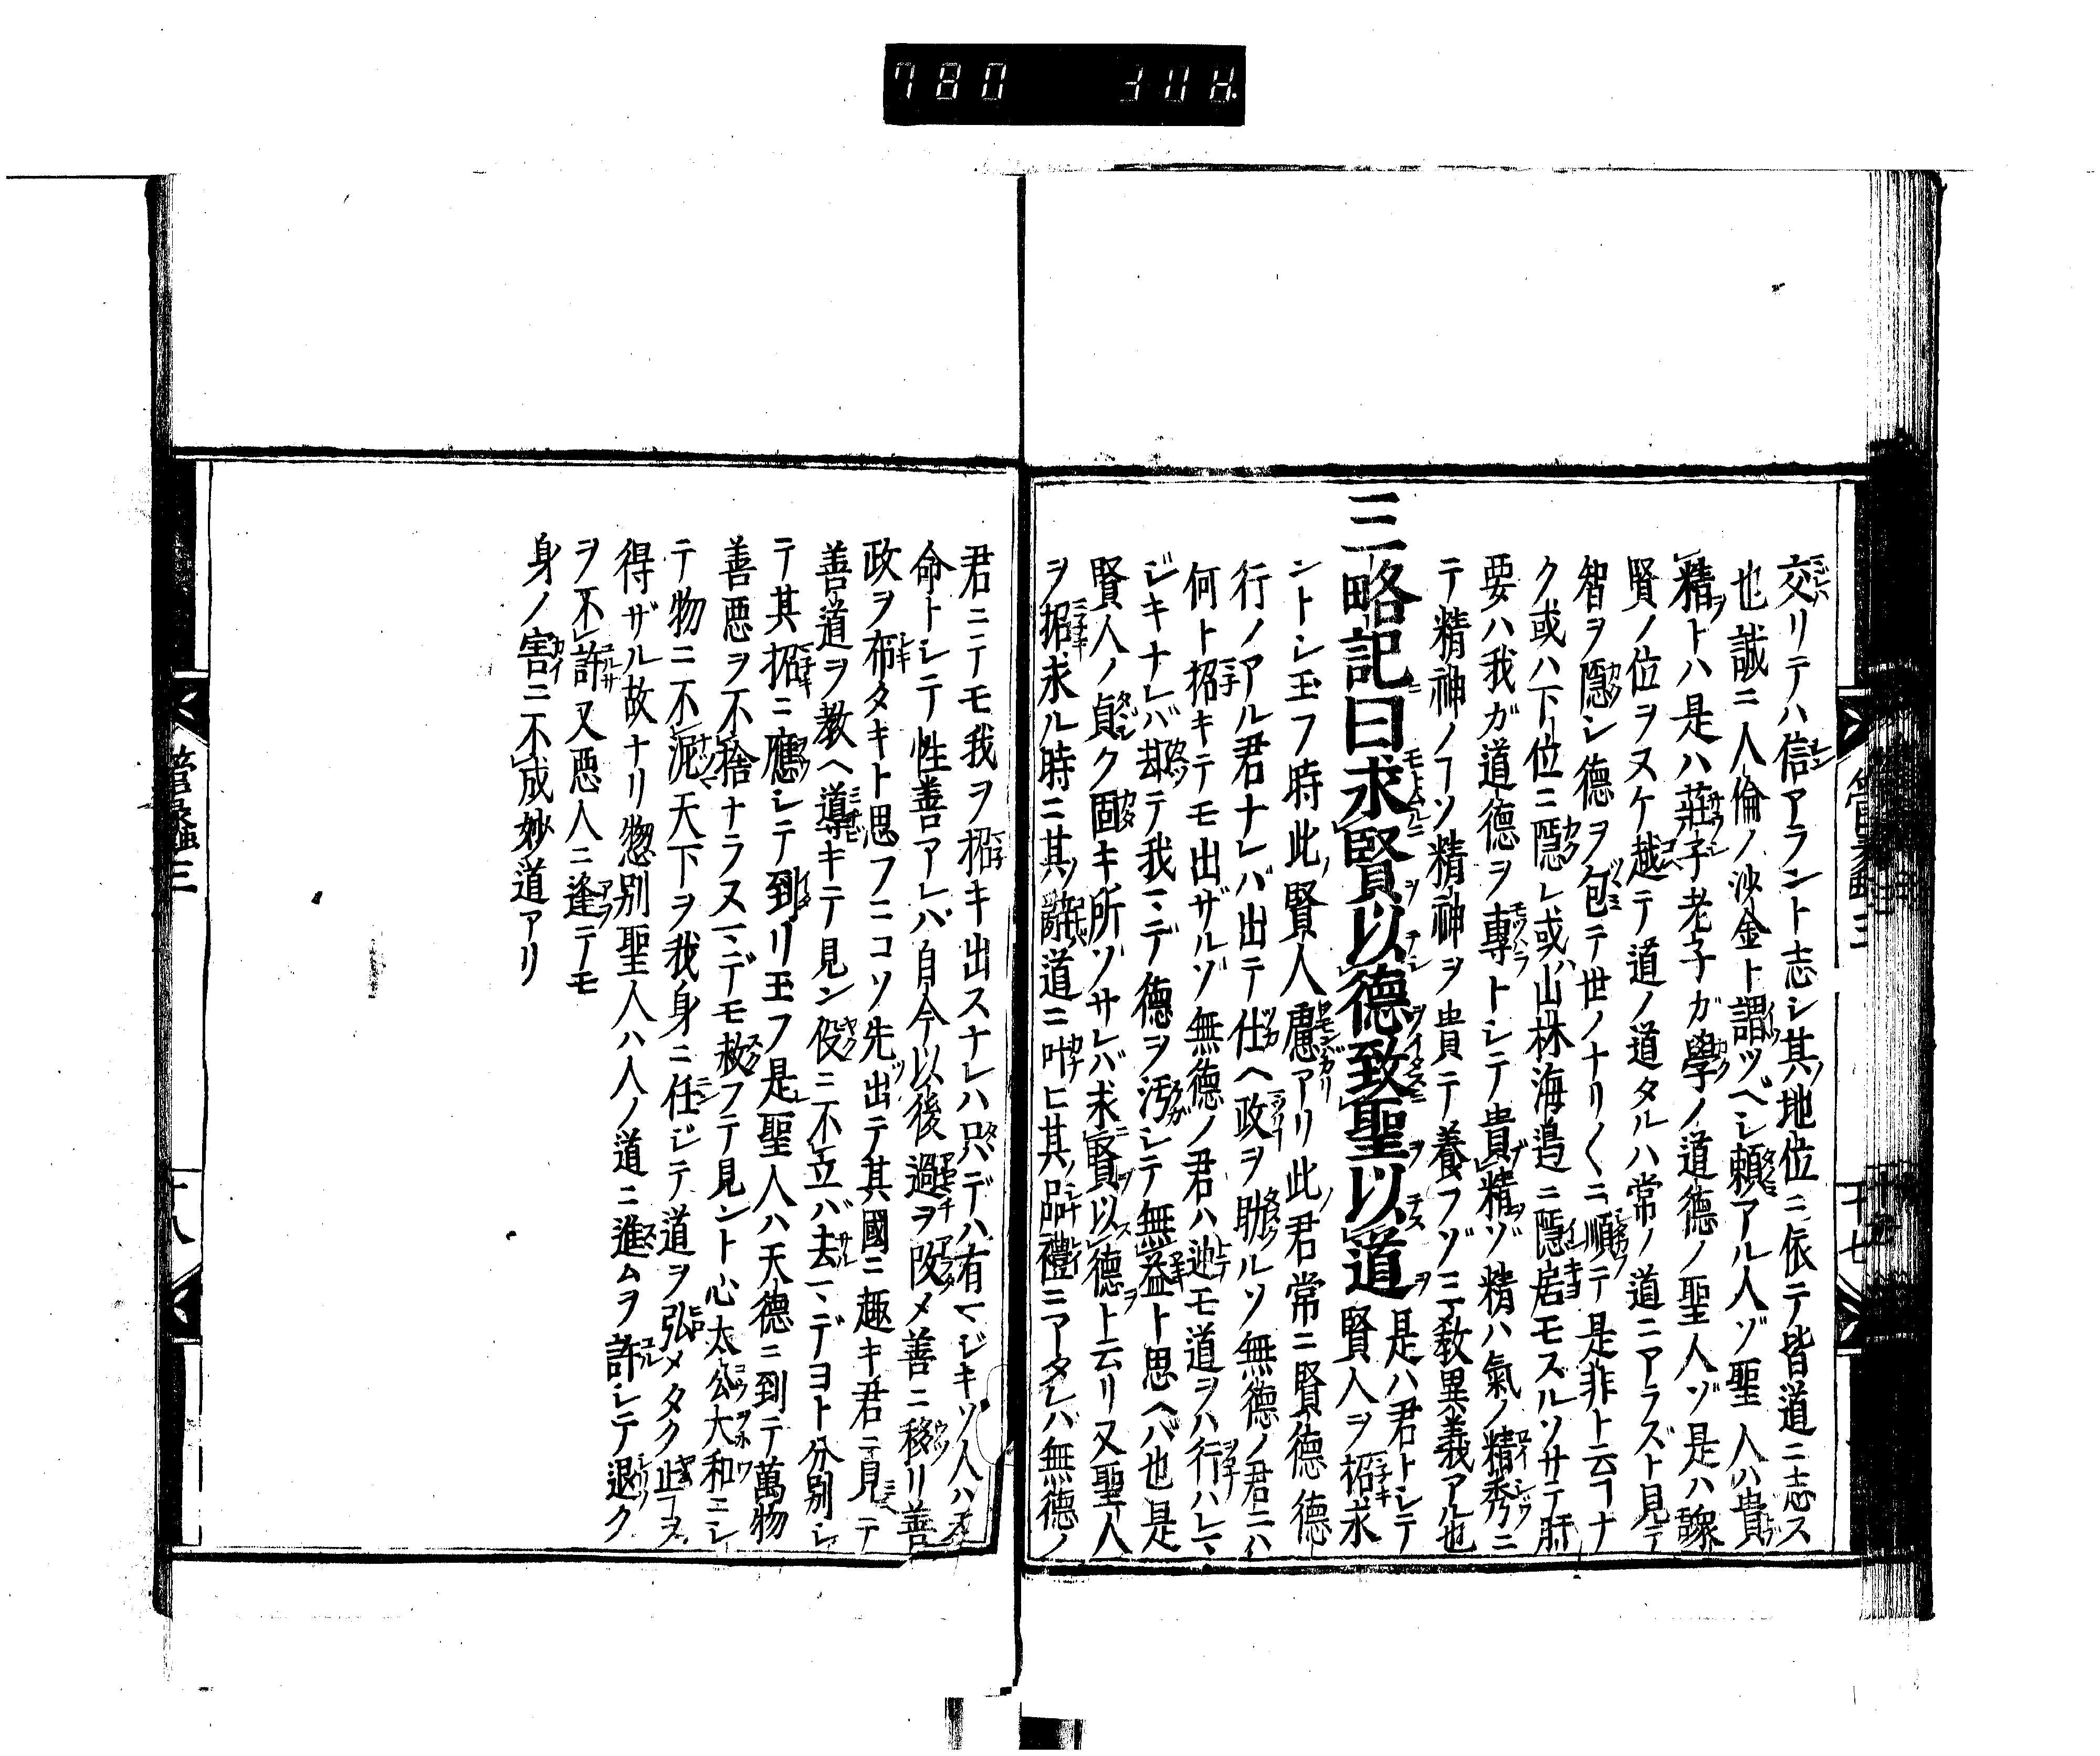 交リテハ信アラント志シ其地位ニ依テ皆道ニ志ス
也誠ニ人倫ノ沙金ト謂ツベシ頼アル人ゾ聖人ハ貴
精トハ是ハ莊子老子ガ學ノ道德ノ聖人ゾ是ハ
賢ノ位ヲヌケ越テ道ノ道タルハ常ノ道ニアラズト見テ
智ヲ隱シ德ヲ包テ世ノナリ〱ニ順テ是非ト云ヿナ
ク或ハ下位ニ隱レ或ハ山林海邉ニ隱居モスルソサテ肝
要ハ我ガ道德ヲ專トシテ貴精ゾ精ハ氣ノ精秀ニ
テ精神ノヿソ精神ヲ貴テ養フゾ三教異義アル也
三略記曰求賢以德致聖以道 是ハ君トシテ賢人ヲ招求
ントシ玉フ時此賢人慮アリ此君常ニ賢德德
行ノアル君ナレバ出テ仕ヘ政ヲ助ルソ無德ノ君ニハ
何ト招キテモ出ザルゾ無德ノ君ハ迚モ道ヲハ行ハレマ
ジキナレバ却テ我マデ德ヲ汚レテ無益ト思ヘバ也是
賢人ノ貞ク固キ所ゾサレバ求賢以德ト云リ又聖人
ヲ招求ル時ニ其辭道ニ叶ヒ其品禮ニアタレバ無德ノ
君ニテモ我ヲ招キ出スナレハ只デハ有マジキソ人ハ天
命トシテ性善アレバ自今以後過ヲ改メ善ニ移リ善
政ヲ布タキト思フニコソ先出テ其國ニ趣キ君ニ見テ
善道ヲ教ヘ導キテ見ン役ニ不立バ去マデヨト分別シ
テ其招ニ應シテ到リ玉フ是聖人ハ天德ニ到テ萬物
善悪ヲ不捨ナラヌマデモ救フテ見ント心太公大和ニシ
テ物ニ不泥天下ヲ我身ニ任ジテ道ヲ弘メタク止ヿヲ
得ザル故ナリ惣別聖人ハ人ノ道ニ進ムヲ許シテ退ク
ヲ不許又悪人ニ逢テモ
身ノ害ニ不成妙道アリ
管蠡三
十七
管蠡三
十八
780